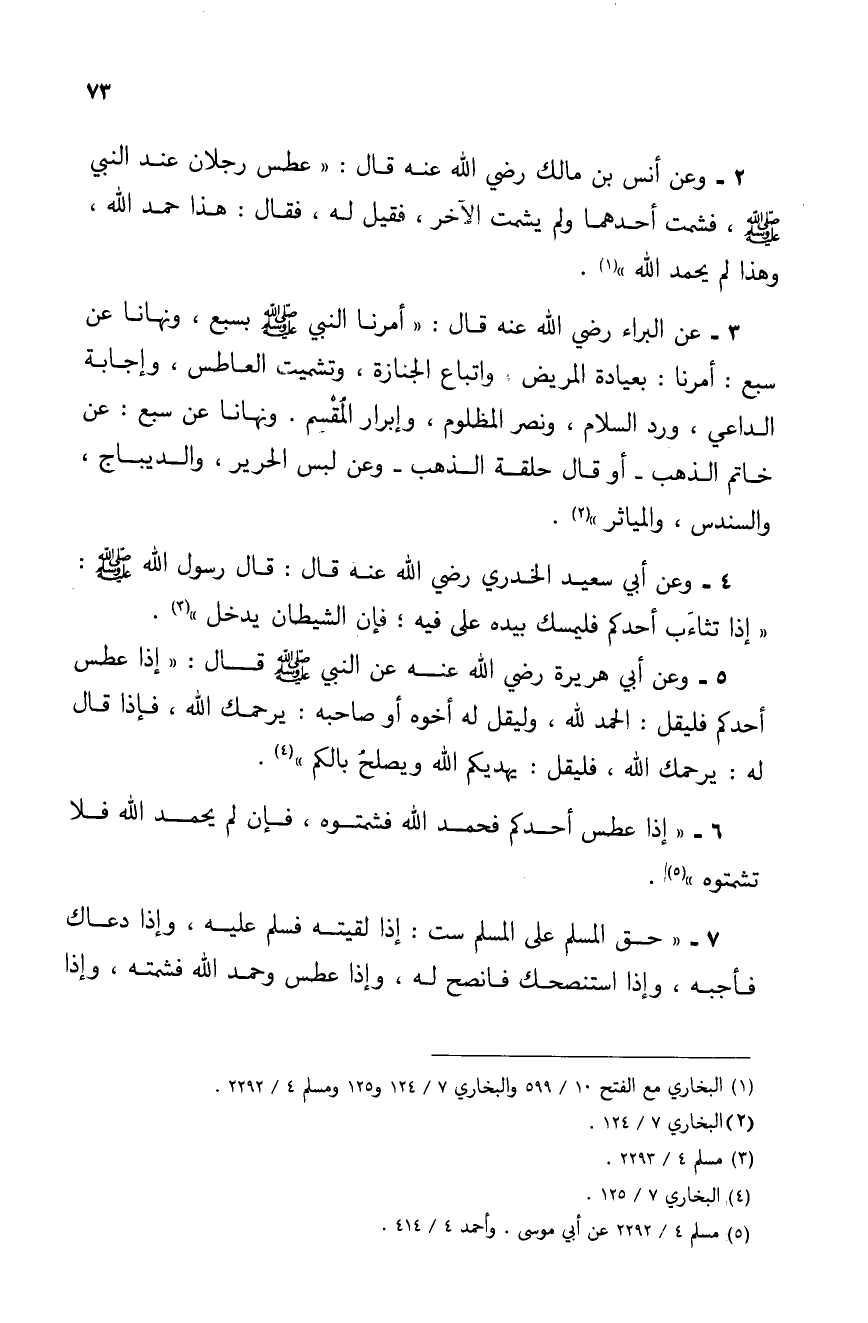 ٧٣
٢ ـ وعن أنس بن مالك رضي الله عنه قال : « عطس رجلان عند النبي
ﷺ ، فشمت أحدهما ولم يشمت الآخر ، فقيل له ، فقال : هذا حمد الله ،
وهذا لم يحمد الله »(١) .
٣ ـ عن البراء رضي الله عنه قال : « أمرنا النبي ﷺ بسبع ، ونهانا عن
سبع : أمرنا : بعيادة المريض ، واتباع الجنازة ، وتشميت العاطس ، وإجابة
الداعي ، ورد السلام ، ونصر المظلوم ، وإبرار المُقْسِم . ونهانا عن سبع : عن
خاتم الذهب ـ أو قال حلقة الذهب ـ وعن لبس الحرير ، والديباج ،
والسندس ، والمياثر »(٢) .
٤ ـ وعن أبي سعيد الخدري رضي الله عنه قال : قال رسول الله ﷺ :
« إذا تثاءَب أحدكم فليمسك بيده على فيه ؛ فإن الشيطان يدخل »(٣) .
٥ ـ وعن أبي هريرة رضي الله عنه عن النبي ﷺ قال : « إذا عطس
أحدكم فليقل : الحمد لله ، وليقل له أخوه أو صاحبه : يرحمك الله ، فإذا قال
له : يرحمك الله ، فليقل : يهديكم الله ويصلحُ بالكم »(٤) .
٦ ـ « إذا عطس أحدكم فحمد الله فشمتوه ، فإن لم يحمد الله فلا
تشمتوه »(٥) .
٧ ـ « حق المسلم على المسلم ست : إذا لقيته فسلم عليه ، وإذا دعاك
فأجبه ، وإذا استنصحك فانصح له ، وإذا عطس وحمد الله فشمته ، وإذا
(١) البخاري مع الفتح ١٠ / ٥٩٩ والبخاري ٧ / ١٢٤ و١٢٥ ومسلم ٤ / ٢٢٩٢ .
(٢) البخاري ٧ / ١٢٤ .
(٣) مسلم ٤ / ٢٢٩٣ .
(٤) البخاري ٧ / ١٢٥ .
(٥) مسلم ٤ / ٢٢٩٢ عن أبي موسى . وأحمد ٤ / ٤١٤ .